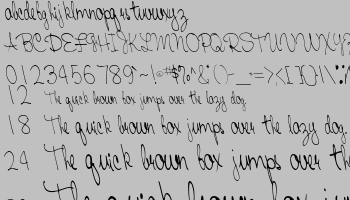 abcdefghijklmnopqrstuvwxyz
ABCDEFGHIJKLMNOPQRSTUVWXYZ
0123456789
12 The quick brown fox jumps over the lazy dog.
18 The quick brown fox jumps over the lazy dog.
24 The quick brown fox jumps over
The quick brown fox